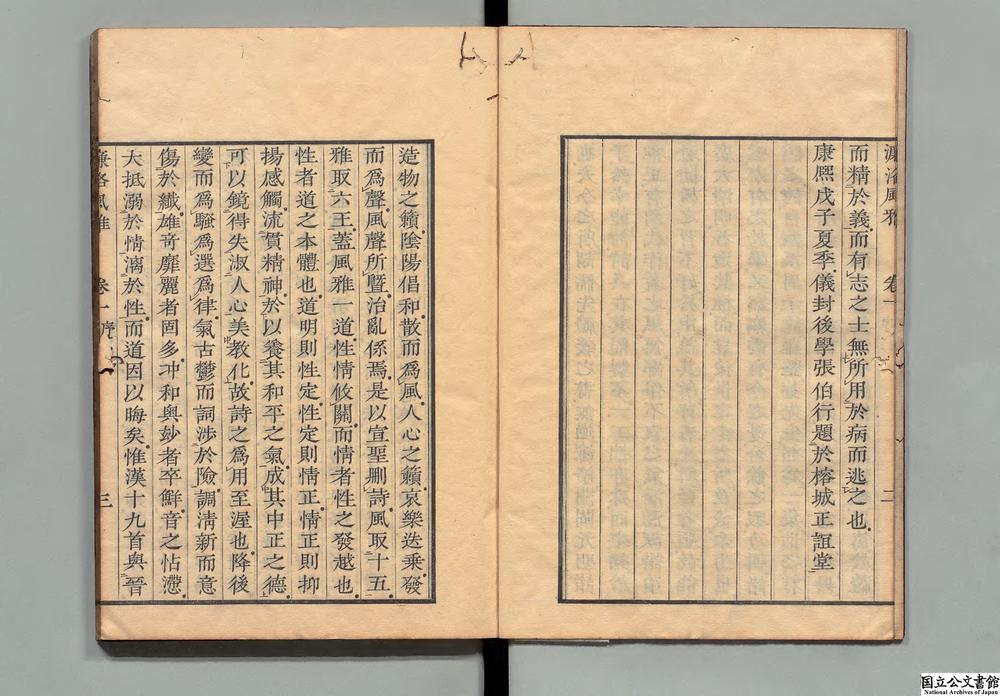 濂洛風雅 卷一序 二
而精於義而有志之士無所用於病而逃之也
康熙戊子夏季儀封後學張伯行題於榕城正誼堂
造物之籟陰陽倡和散而爲風人心之籟哀樂迭乗發
而爲聲風聲所曁治亂係焉是以宣聖刪詩風取十五
雅取六王蓋風雅一道性情攸關而情者性之發越也
性者道之本體也道明則性定性定則情正情正則抑
揚感觸流貫精神於以養其和平之氣成其中正之德
可以鏡得失淑人心美教化故詩之爲用至渥也降後
變而爲騷爲選爲律氣古鬱而詞涉於險調淸新而意
傷於纖雄奇靡麗者固多冲和與玅者卒鮮音之怗懘
大抵溺於情漓於性而道因以晦矣惟漢十九首與晉
濂洛風雅 卷一序 三
国立公文書館
National Archives of Japan